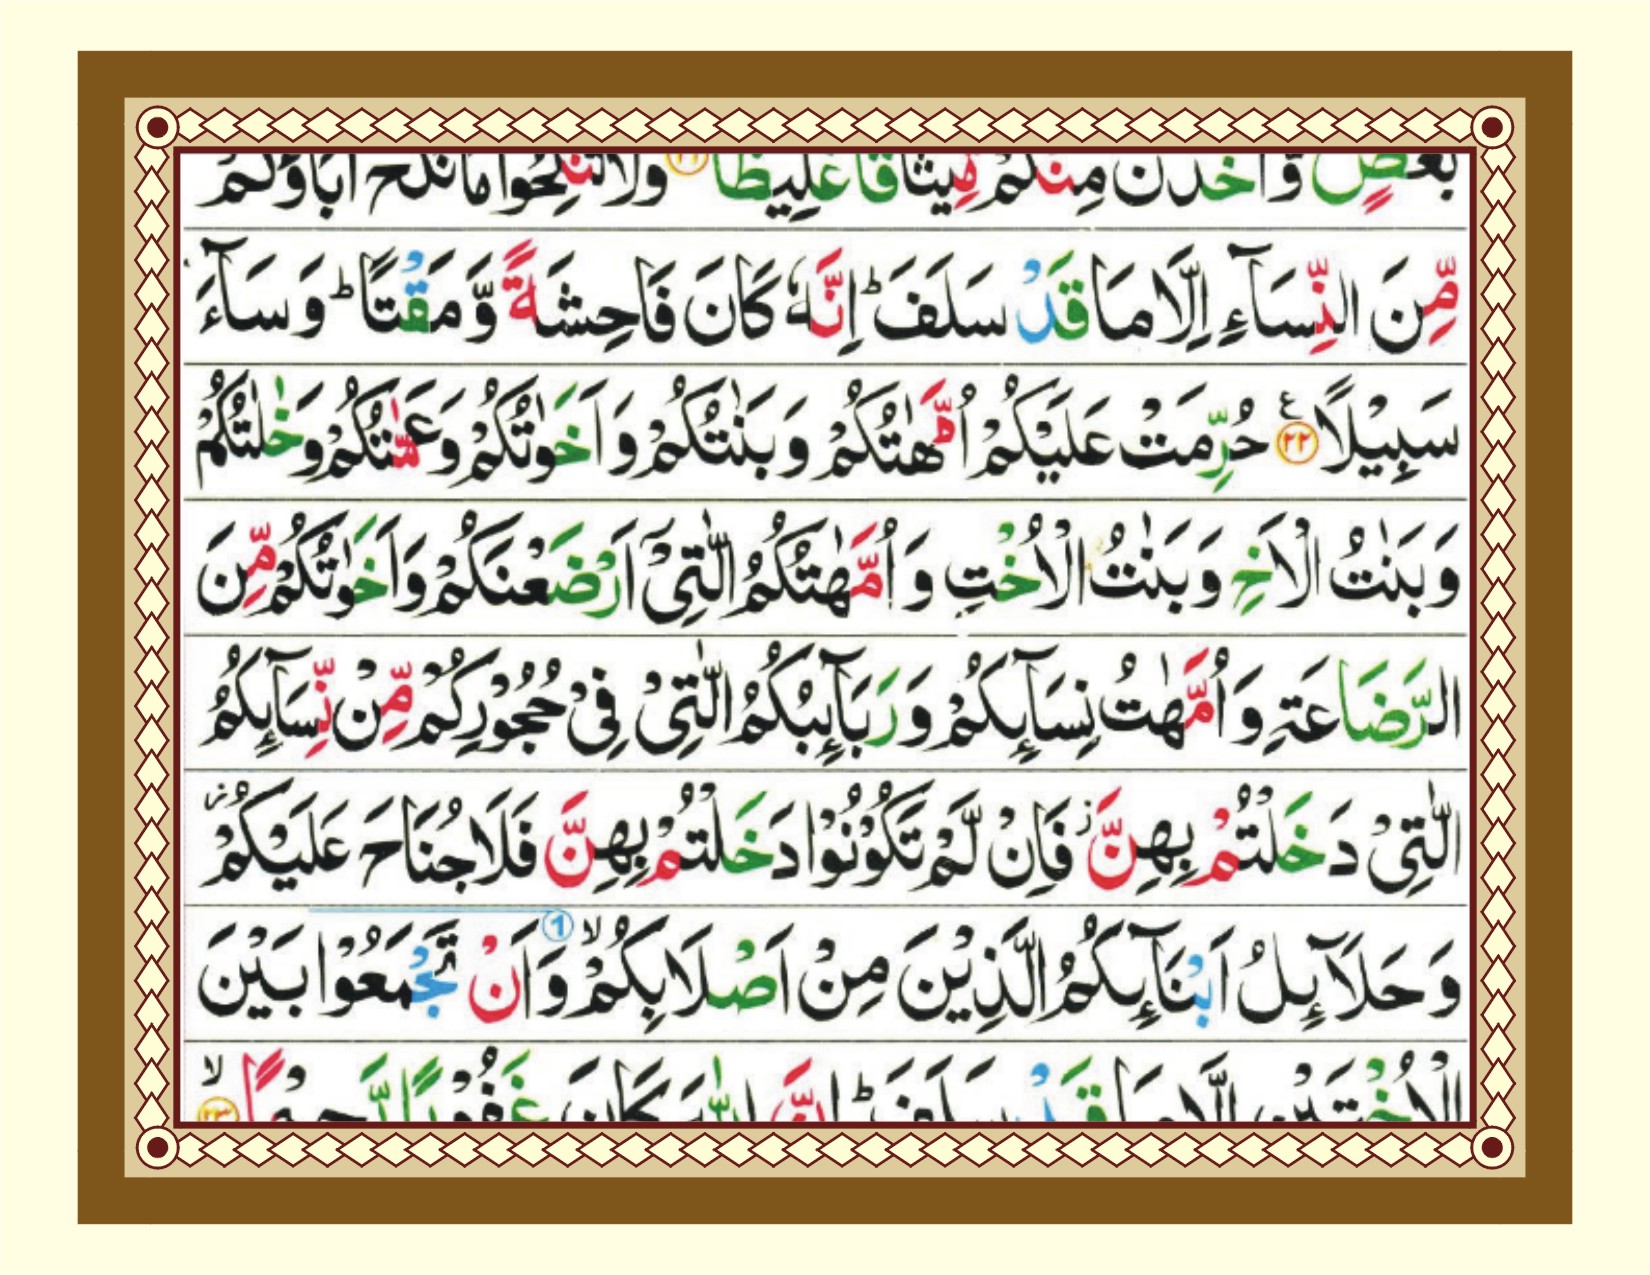 بَعْضٍ وَّاَخَذْنَ مِنْكُمْ مِّيْثَاقًا غَلِيْظًا ﴿۲۱﴾ وَلَا تَنْكِحُوْا مَا نَكَحَ اٰبَآؤُكُمْ
مِّنَ النِّسَآءِ اِلَّا مَا قَدْ سَلَفَ ؕ اِنَّهٗ كَانَ فَاحِشَةً وَّمَقْتًا ؕ وَسَآءَ
سَبِيْلًا ﴿۲۲﴾ ع حُرِّمَتْ عَلَيْكُمْ اُمَّهٰتُكُمْ وَبَنٰتُكُمْ وَاَخَوٰتُكُمْ وَعَمّٰتُكُمْ وَخٰلٰتُكُمْ
وَبَنٰتُ الْاَخِ وَبَنٰتُ الْاُخْتِ وَاُمَّهٰتُكُمُ الّٰتِيْۤ اَرْضَعْنَكُمْ وَاَخَوٰتُكُمْ مِّنَ
الرَّضَاعَةِ وَاُمَّهٰتُ نِسَآىِٕكُمْ وَرَبَآىِٕبُكُمُ الّٰتِيْ فِيْ حُجُوْرِكُمْ مِّنْ نِّسَآىِٕكُمُ
الّٰتِيْ دَخَلْتُمْ بِهِنَّ ؗ فَاِنْ لَّمْ تَكُوْنُوْا دَخَلْتُمْ بِهِنَّ فَلَا جُنَاحَ عَلَيْكُمْ ؗ
وَحَلَآىِٕلُ اَبْنَآىِٕكُمُ الَّذِيْنَ مِنْ اَصْلَابِكُمْ ۙ وَاَنْ تَجْمَعُوْا بَيْنَ
الْاُخْتَيْنِ اِلَّا مَا قَدْ سَلَفَ ؕ اِنَّ اللّٰهَ كَانَ غَفُوْرًا رَّحِيْمًا ۙ ﴿۲۳﴾